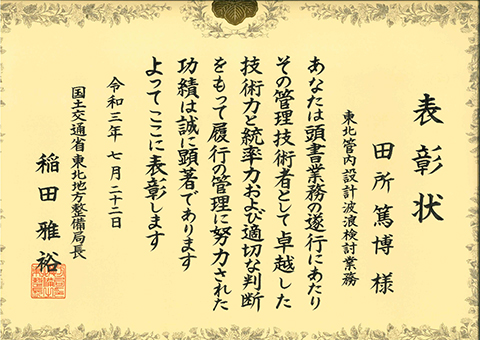 表彰状
東北管内設計波浪検討業務
田所篤博 様
あなたは頭書業務の遂行にあたり
その管理技術者として卓越した
技術力と統率力および適切な判断
をもって履行の管理に努力された
功績は誠に顕著であります
よってここに表彰します
令和三年七月二十二日
国土交通省東北地方整備局長
稲田雅裕